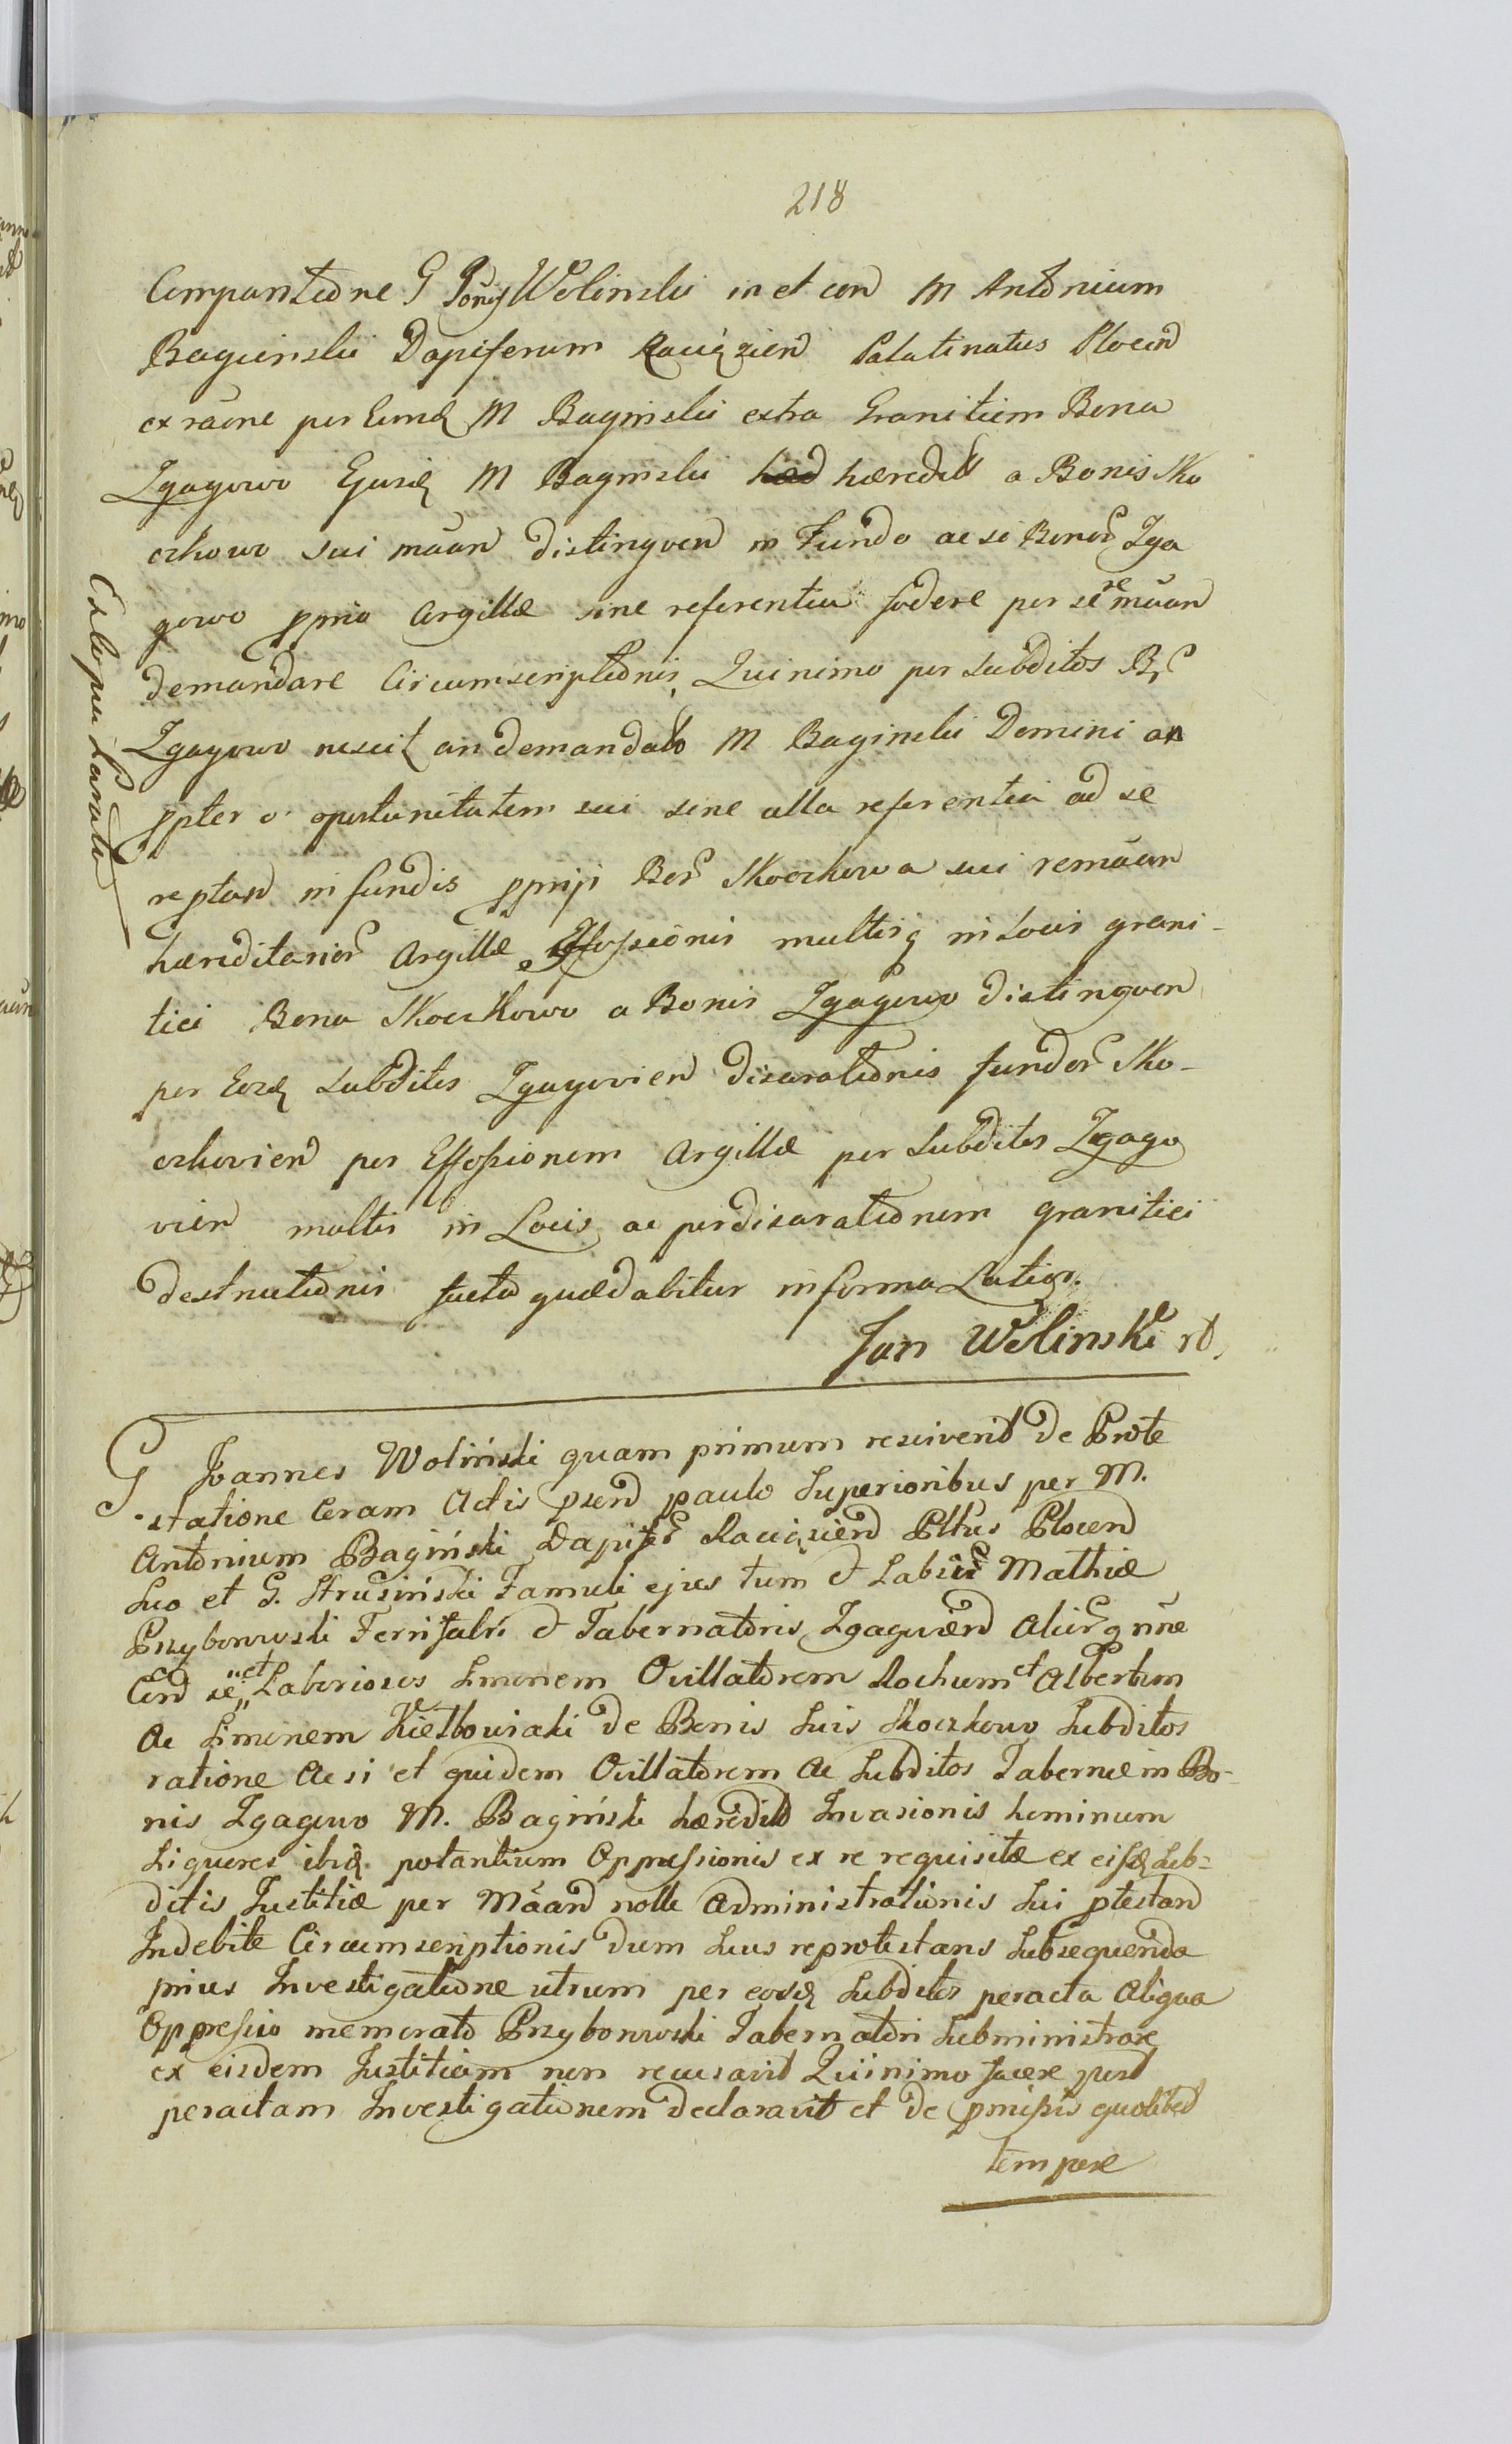 218
Comparitione G Joãnis Wolinski in et con M Antonium
Baginski Dapiferum Raciązien Palatinatus Plocen
ex raõne per Eund M Baginski extra Granitiem Bona
Zgagowo Ejusd M Baginski hæredit a Bonis Sko
czkowo sui mãan distingven in Fundo ac si Bonor Zga
gowo pprio Argillæ sine referentia fodere per se re mãan
demandare Circumscriptionis, Quinimo per subditos
Zgagowo nescit an demandato M Baginski Domini an
ppter opportunitatem sui sine ulla referentia ad se
reptan in fundis pprijs Bor Skoczkowa sui remãan
hæreditarior Argillæ Effossionis multisq in Locis grani-
tiei Bona Skoczkowo a Bonis Zgagowo distingven
per Eosd subditos Zgagovien disarationis fundor Sko-
czkovien per Effossionem Argillæ per Subditos Zgago
vien multis in Locis ac per disarationem granitiei
destructionis facta quæ dabitur in forma Latior.
Jan Woliński
Extrpu Parato
G Joannes Woliński quam primum resciverit de Prote
statione Coram Actis psen paulo Superioribus per M.
Antonium Bagiński Dapifer Raciązien Pltus Plocen
Suo et G. Strusiński Famuli ejus tum et Labsi Mathiæ
Przyborowski Ternifabri et Tabernatoris Zgagovien Aliorq nñe
Con se et Laboriosos Simonem Ovillatorem Rochum et Albertum
ac Simonem Kiełbowiaki de Bonis Suis Skoczkowo Subditos
ratione ac si et quidem Ovillatorem ac Subditos Tabernæ in Bo-
nis Zgagowo M. Bagiński hæredit Invasionis hominum
Liquores ibid. potantium Oppressionis ex re requisitæ ex eisd Sub-
ditis Justitiæ per Mãan nolle Administrationis Sui ptestan
Indebite Circumscriptionis dum Suus reprotestans Subsequenda
prius Investigatione utrum per eosd Subditos peracta Aliqua
Oppressio memorato Przyborowski Tabernatori Subministrare
ex eisdem Justitiam non recusavit Quinimo facere post
peractam Investigationem declaravit et de pmissis quolibet
tempore